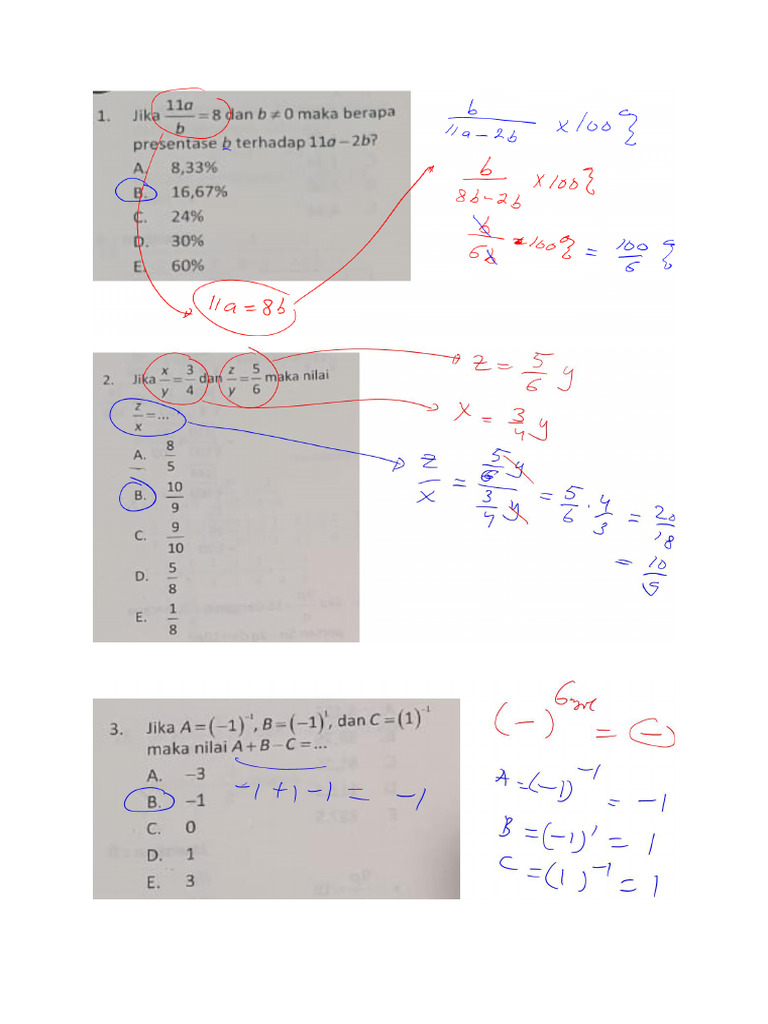 1. Jika 11a/b = 8 dan b ≠ 0 maka berapa
presentase b terhadap 11a – 2b?
A. 8,33%
B. 16,67%
C. 24%
D. 30%
E. 60%
11a = 8b
b/(11a-2b) x100%
b/(8b-2b) x100%
b/6b 100% = 100/6 %
2. Jika x/y = 3/4 dan z/y = 5/6 maka nilai
z/x = ...
A. 8/5
B. 10/9
C. 9/10
D. 5/8
E. 1/8
z = 5/6 y
x = 3/4 y
z/x = (5/6 y)/(3/4 y) = 5/6 · 4/3 = 20/18
= 10/9
3. Jika A = (–1)⁻¹, B = (–1)¹, dan C = (1)⁻¹
maka nilai A + B – C = ...
A. –3
B. –1
C. 0
D. 1
E. 3
-1 + 1 - 1 = -1
(-) = (-)
A = (-1)⁻¹ = -1
B = (-1)¹ = 1
C = (1)⁻¹ = 1